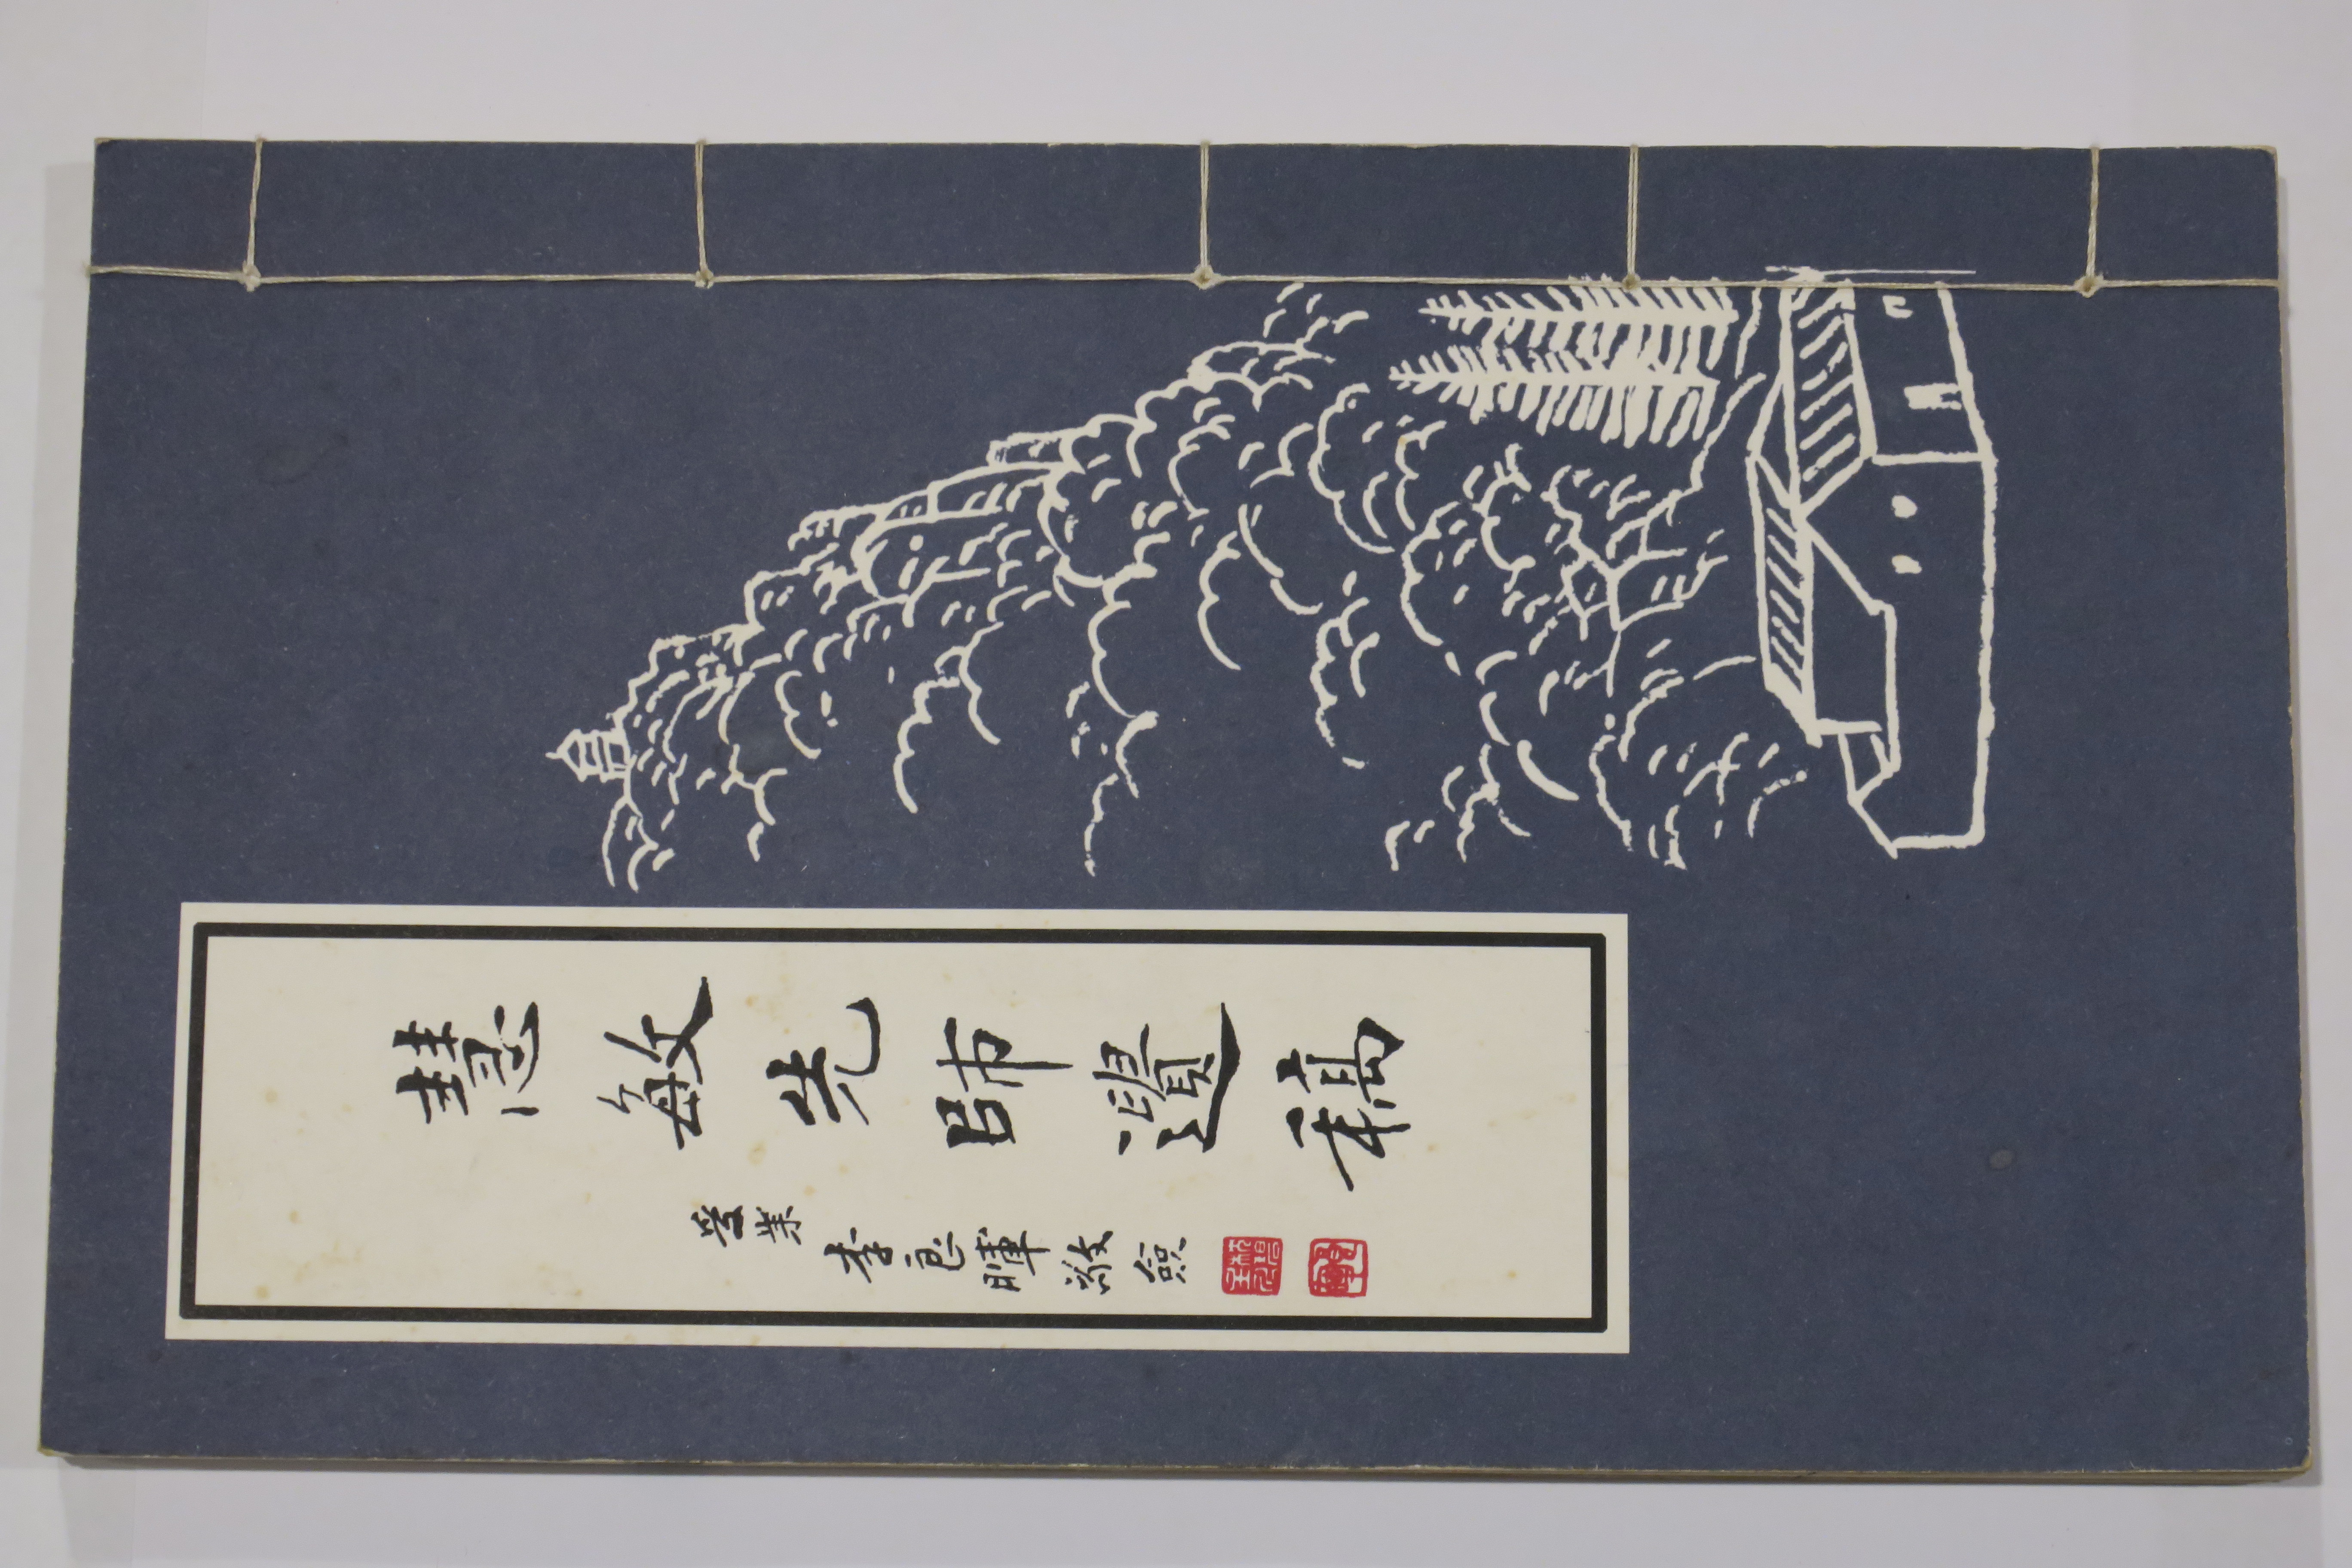 慧敏先師遺稿
受業 李暉敬僉